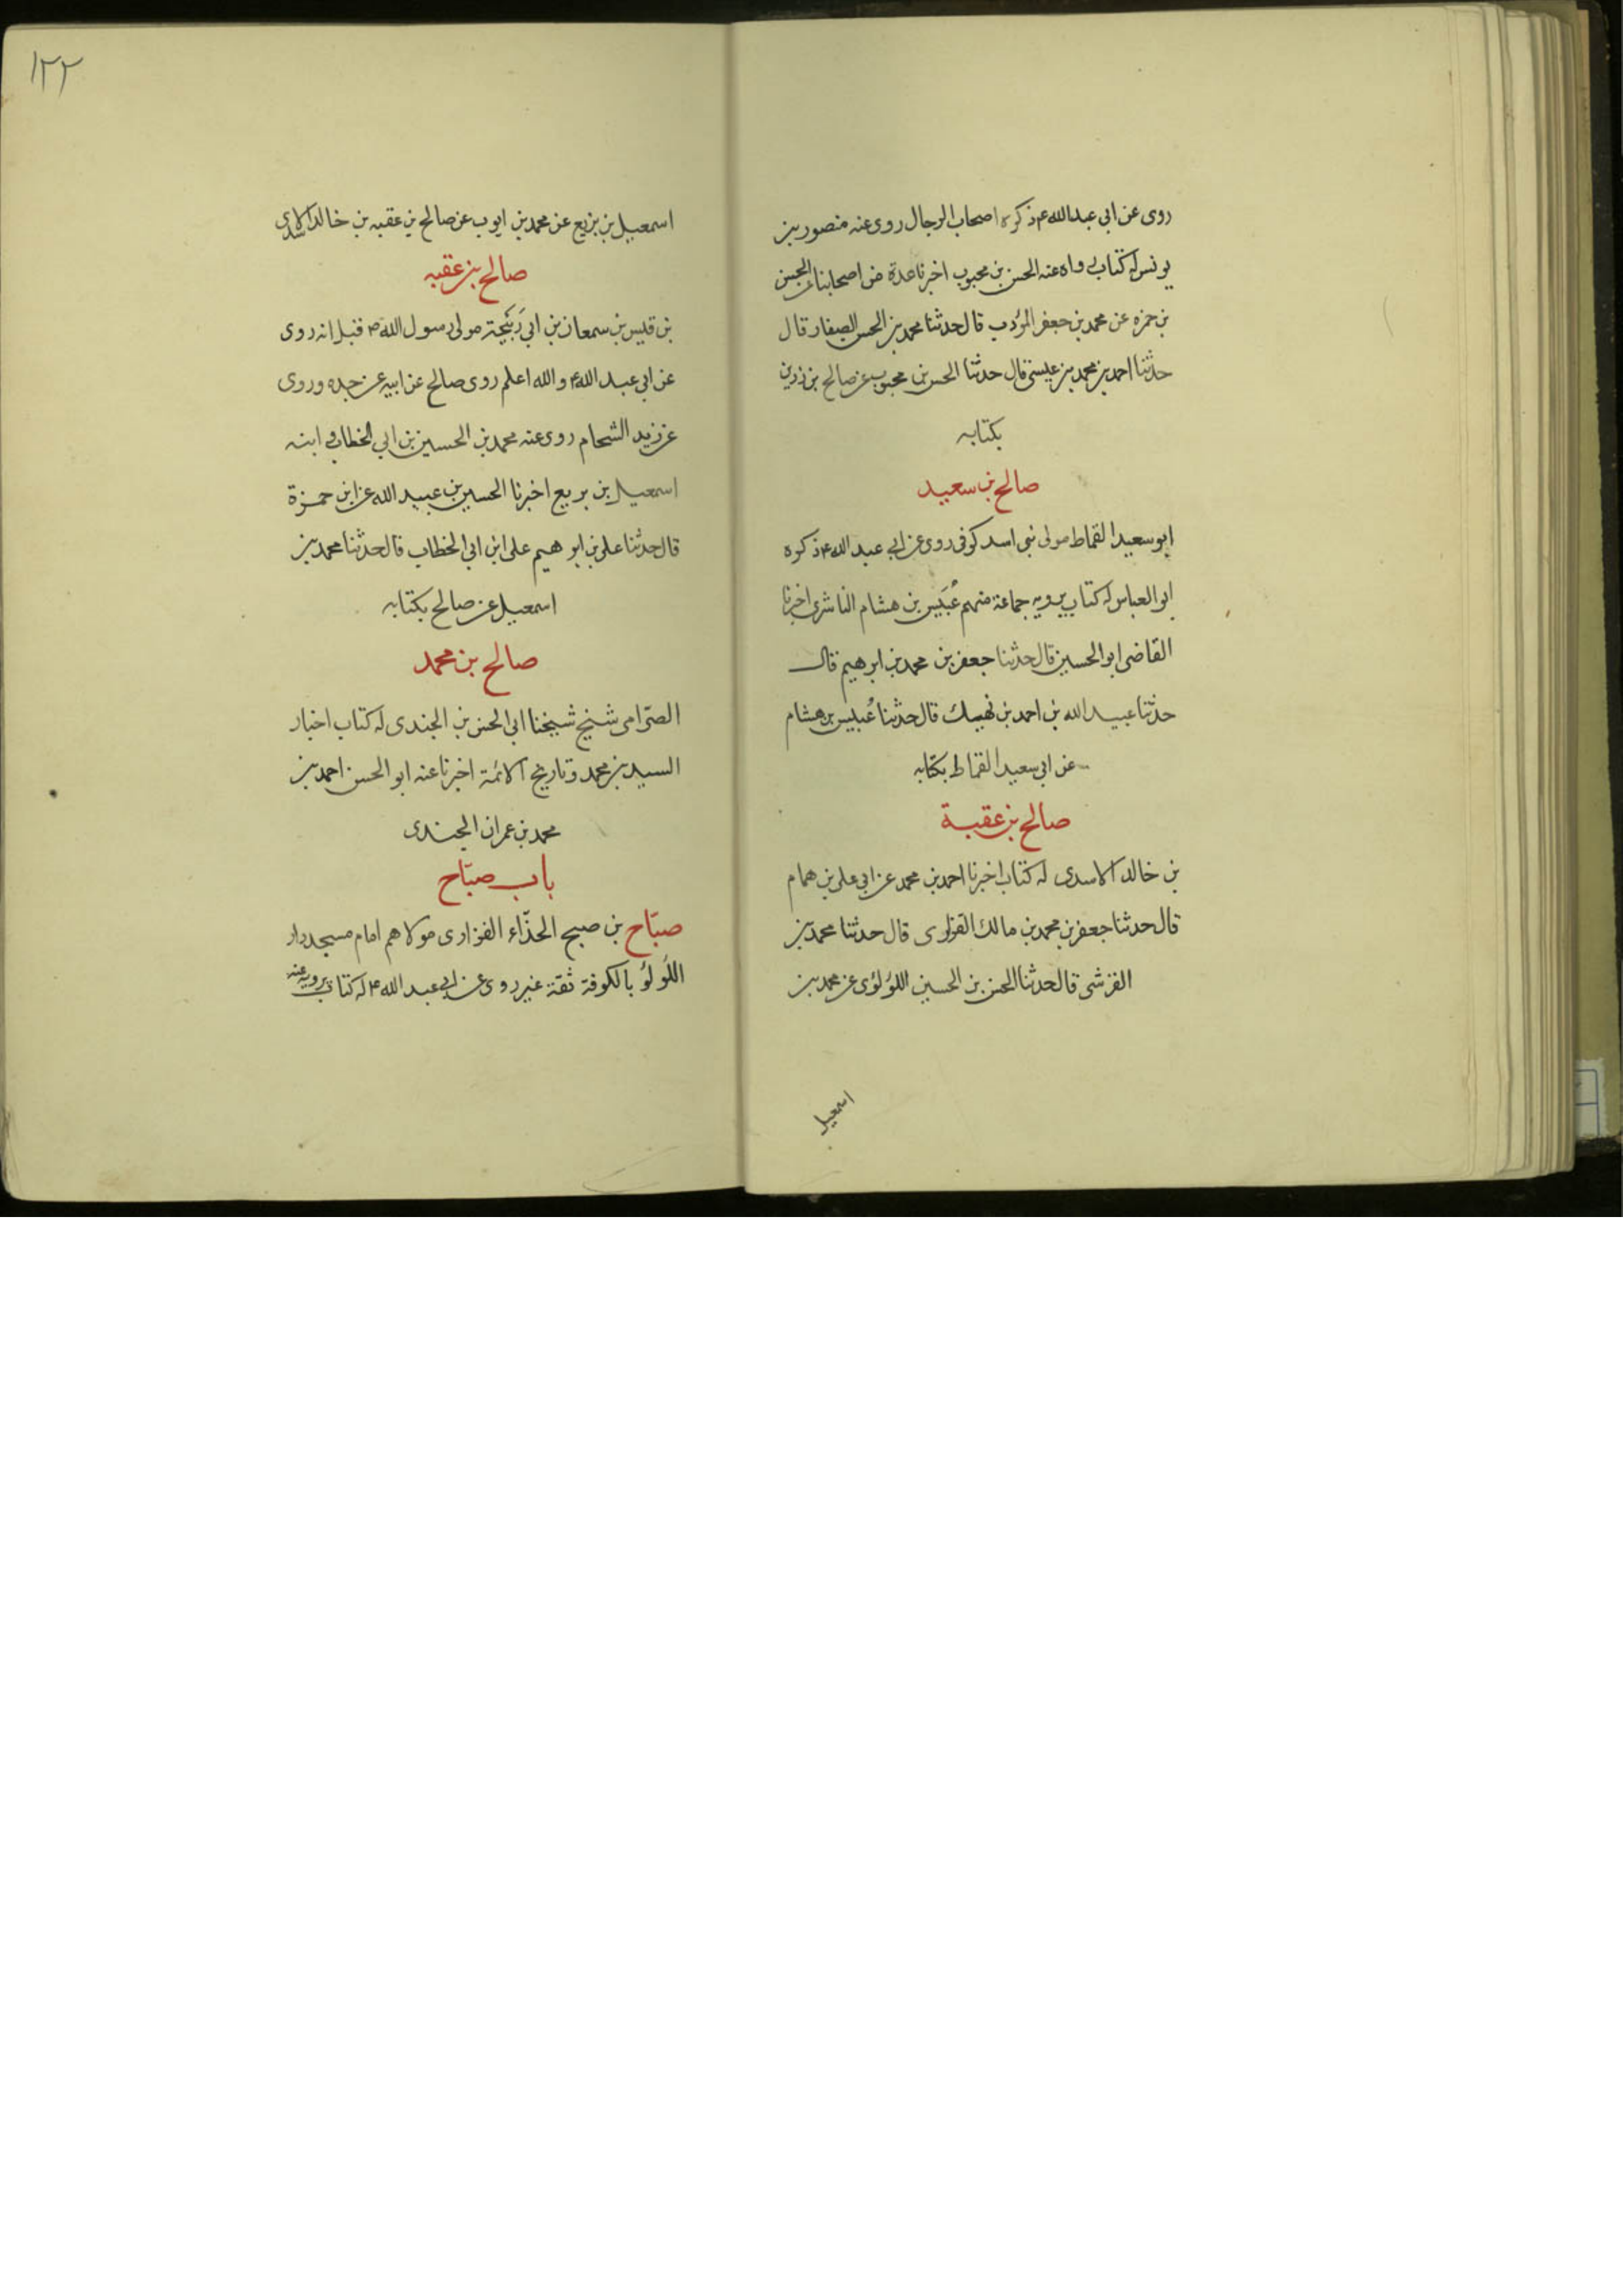 روى عن ابى عبدالله ع ذكره اصحاب الرجال روى عنه منصور بن
يونس له كتاب رواه عنه الحسن بن محبوب اخبرنا عدة من اصحابنا عن الحسن
بن حمزه عن محمد بن جعفر المؤدب قال حدثنا محمد بن الحسن الصفار قال
حدثنا احمد بن محمد بن عيسى قال حدثنا الحسن بن محبوب عن صالح بن رزين
بكتابه
صالح بن سعيد
ابو سعيد القماط مولى بنى اسد كوفى روى عن ابى عبد الله ع ذكره
ابو العباس له كتاب يرويه جماعة منهم عُبَيس بن هشام الناشرى اخبرنا
القاضى ابو الحسين قال حدثنا جعفر بن محمد بن ابرهيم قال
حدثنا عبيد الله بن احمد بن نهيك قال حدثنا عُبيس بن هشام
عن ابى سعيد القماط بكتابه
صالح بن عقبة
بن خالد الاسدى له كتاب اخبرنا احمد بن محمد عن ابى على بن همام
قال حدثنا جعفر بن محمد بن مالك الفزارى قال حدثنا محمد بن
القرشى قال حدثنا الحسن بن الحسين اللؤلؤى عن محمد بن
اسمعيل
١٢٢
اسمعيل بن بزيع عن محمد بن ايوب عن صالح بن عقبه بن خالد الاسدى
صالح بن عقبه
بن قيس بن سمعان بن ابى رَبَيْحة مولى رسول الله ص قيل انه روى
عن ابى عبد الله ع والله اعلم روى صالح عن ابيه عن جده وروى
عن زيد الشحام روى عنه محمد بن الحسين بن ابى الخطاب و ابنه
اسمعيل بن بزيع اخبرنا الحسين بن عبيد الله عن ابن حمزة
قال حدثنا على بن ابرهيم على ابن ابى الخطاب قال حدثنا محمد بن
اسمعيل عن صالح بكتابه
صالح بن محمد
الصّرامى شيخ شيخنا ابى الحسن بن الجندى له كتاب اخبار
السيد بن محمد و تاريخ الائمة اخبرنا عنه ابو الحسن احمد بن
محمد بن عمران الجندى
باب صبّاح
صبّاح بن صبيح الحذّاء الفزارى مولاهم امام مسجد دار
اللؤلؤ بالكوفة ثقة عين روى عن ابى عبد الله ع له كتاب يرويه عنه